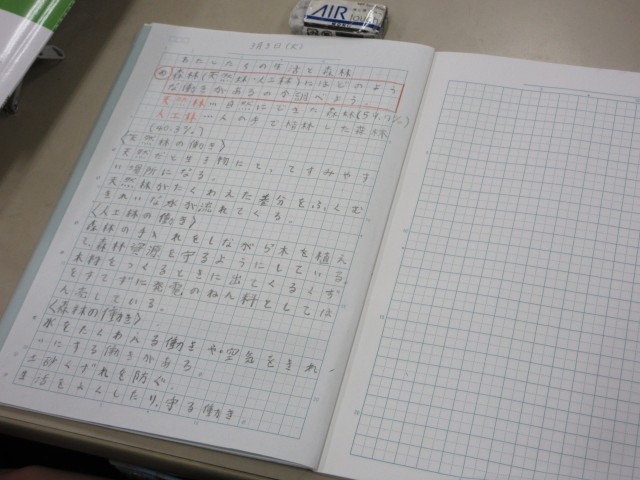 AIR
touch
3月3日(火)
わたしたちの生活と森林
森林(天然林・人工林)にはどのよう
な働きがあるのか調べよう。
天然林…自然にできた森林(59.7%)
人工林…人の手で植林した森林
(40.3%)
〈天然林の働き〉
天然だと生き物にとってすみやす
い場所になる。
天然林がたくわえた養分をふくむ
きれいな水が流れてくる。
〈人工林の働き〉
森林の手入れをしながら木を植え
て森林資源を守るようにしている。
木材をつくるときに出てくるくず
をすてずに発電のねん料としては
ん売している。
〈森林の働き〉
水をたくわえる働きや空気をきれ
いにする働きがある。
土砂くずれを防ぐ。
生活をよくしたり、守る働き。